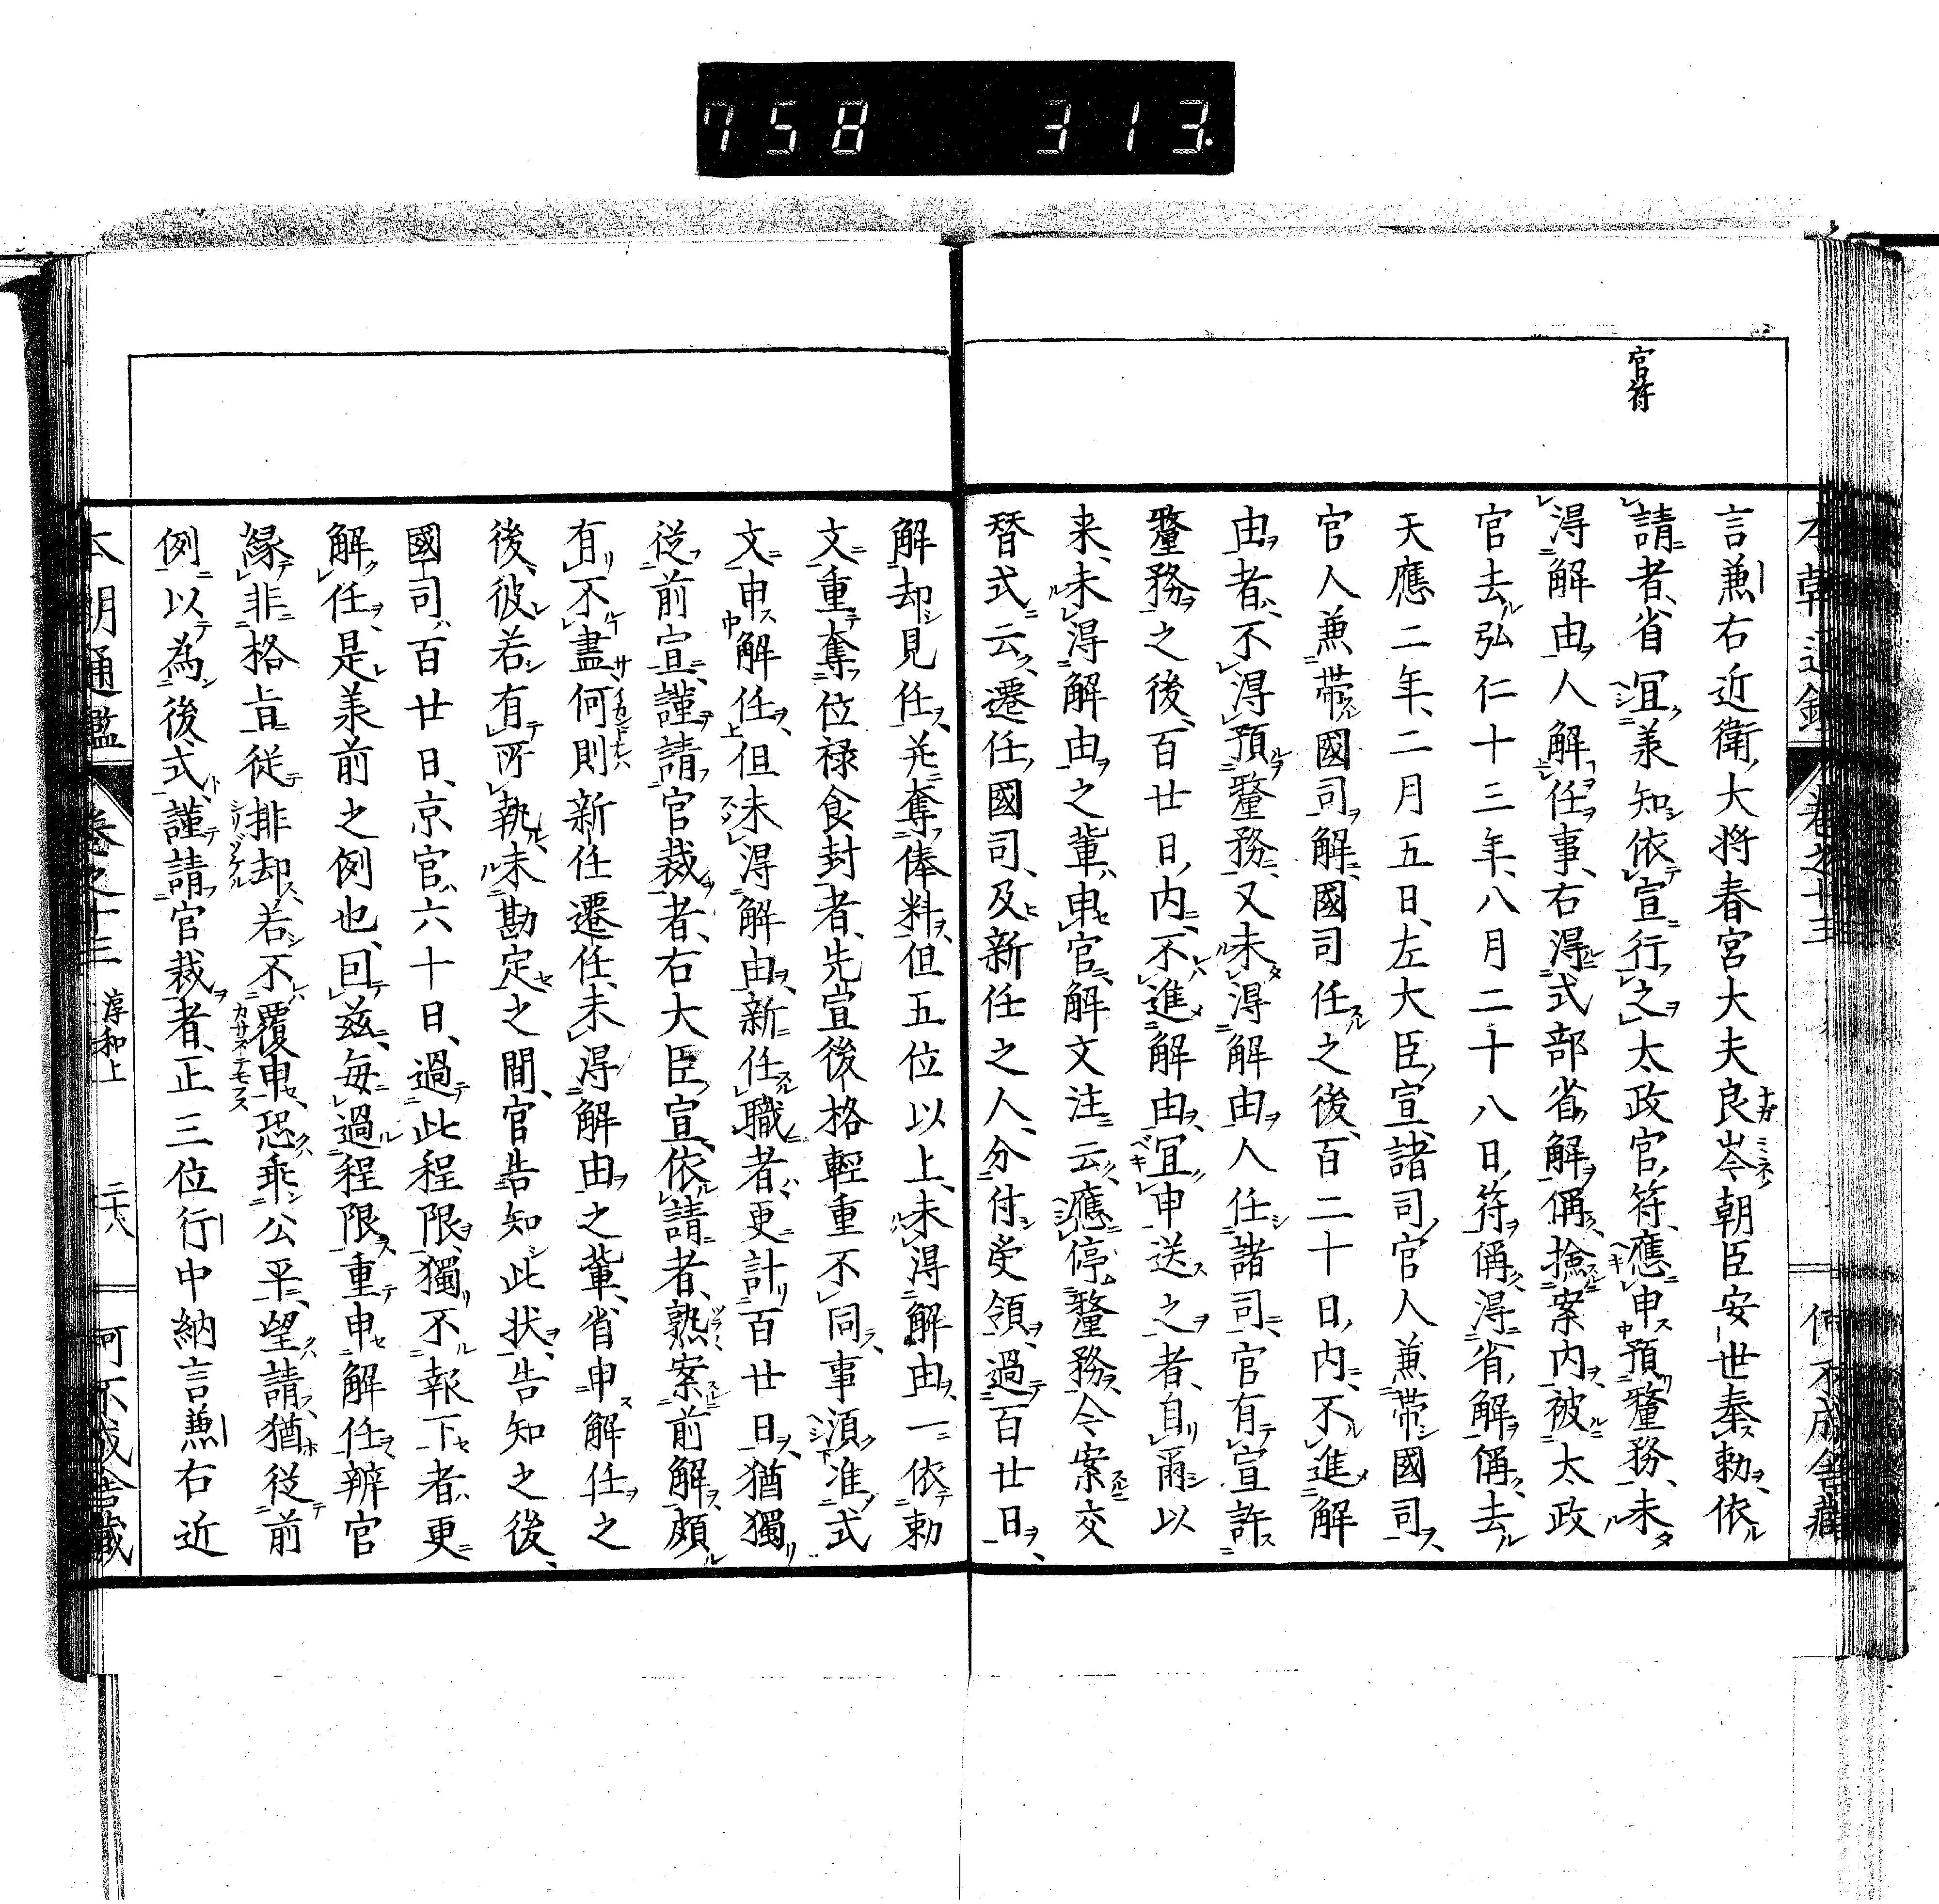 758 313.
官符
言兼右近衛大将春宮大夫良岑朝臣安世奏勅依
請者、省冝羕知依宣行之太政官符、應申預釐務、未
得解由人解任事、右得式部省解偁撿案内被太政
官去弘仁十三年、八月二十八日符偁得省解偁、去
天應二年、二月五日、左大臣宣、諸司官人兼帶國司、
官人兼帶國司解國司任之後、百二十日内、不進解
由者、不得預釐務、又未得解由人任諸司、官有宣許
釐務之後、百廿日内、不進解由、冝申送之者、自爾以
来、未得解由之輩、申官、解文注云、應停釐務、今案交
替式云、遷任國司、及新任之人、分付受領、過百廿日、
解却見任、并奪俸料、但五位以上、未得解由、一依勅
文、重奪位禄食封者、先宣後格輕重不同、事湏准式
文、申解任、但未得解由、新任職者、更計百廿日、猶獨
従前宣、謹請官裁者、右大臣宣、依請者、熟案前解、頗
有不盡、何則新任遷任、未得解由之輩、省申解任之
後、彼若有所執、未勘定之間、官告知此状、告知之後、
國司百廿日、京官六十日、過此程限、獨不報下者、更
解任、是羕前之例也、囙茲、毎過程限、重申解任、辨官
縁非格旨、従排却、若不覆申、恐乖公平、望請猶従前
例、以為後式、謹請官裁者、正三位行中納言兼右近
本朝通鑑 巻之十三 淳和上 二十八